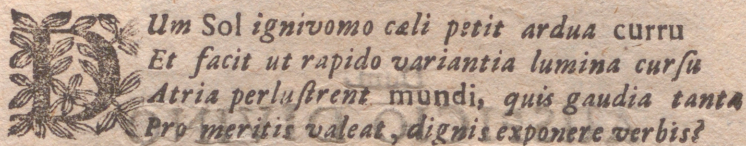 DUm Sol ignivomo cæli petit ardua curru
Et facit ut rapido variantia lumina cursu
Atria perlustrent mundi, quis gaudia tanta
Pro meritis valeat, dignis exponere verbis?